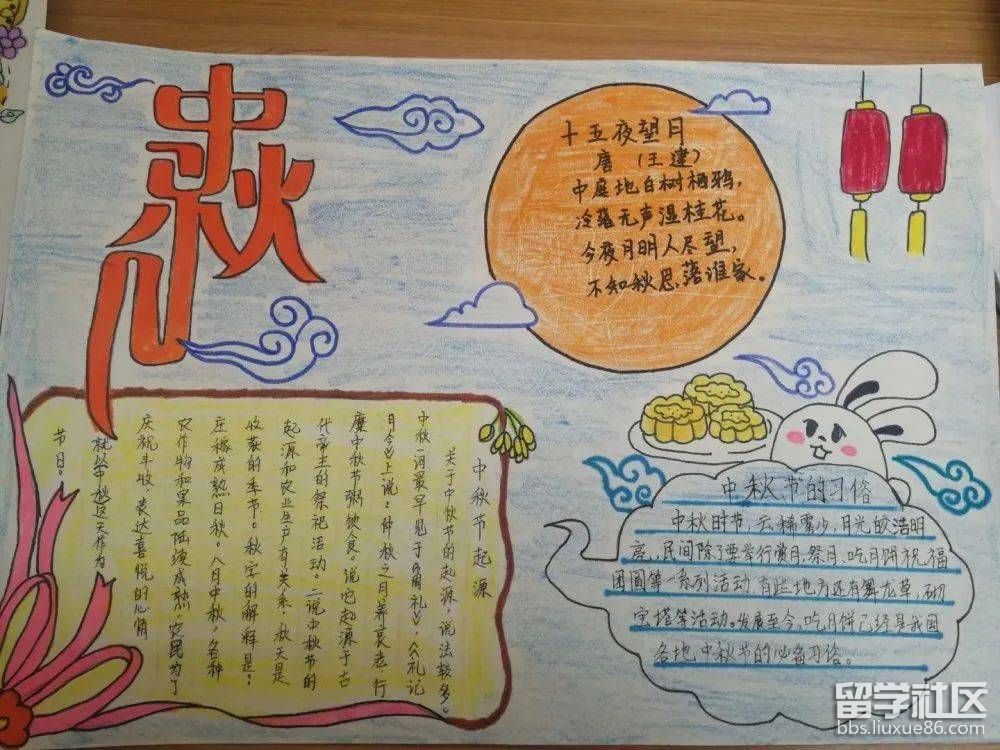 中秋
十五夜望月
唐 (王建)
中庭地白树栖鸦,
冷落无声湿桂花。
今夜月明人尽望,
不知秋思落谁家。
中秋节起源
关于中秋节的起源,说法较多。
中秋一词最早见于《周礼》,《礼记
月令》上说:仲秋之月养衰老行
糜中秋节粥饮食。说它起源于古
代帝王的祭祀活动。二说中秋节的
起源和农业生产有关系,秋天是
收获的季节。秋字的解释是:
庄稼成熟日秋。八月中秋,各种
农作物和果品陆续成熟,农民为了
庆祝丰收,表达喜悦的心情
就以中秋这天作为
节日。
中秋节的习俗
中秋时节,云稀雾少,月光皎洁明
亮,民间除了要举行赏月,祭月、吃月饼祝福
团圆等一系列活动,有些地方还有舞龙草,砌
宝塔等活动。发展至今,吃月饼已经是我国
各地中秋节的必备习俗。
留学社区
bbs.liuxue86.com